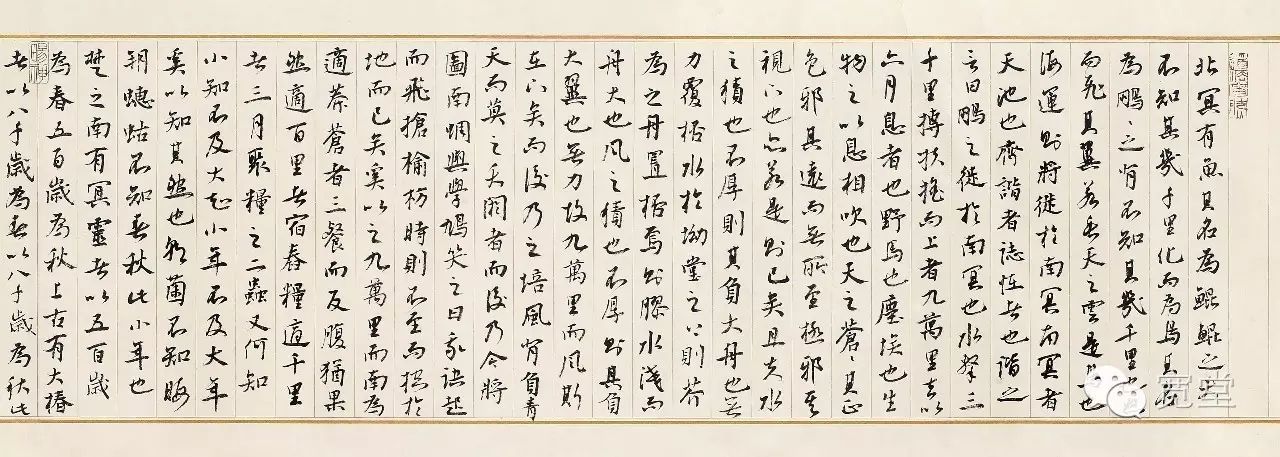 北冥有魚其名為鯤鯤之大
不知其幾千里化而為鳥其名
為鵬〻之背不知其幾千里也
而飛其翼若垂天之雲是鳥也
海運則將徙於南冥南冥者
天池也齊諧者誌怪者也諧之
言曰鵬之徙於南冥也水擊三
千里摶扶搖而上者九萬里去以
六月息者也野馬也塵埃也生
物之以息相吹也天之蒼〻其正
色邪其遠而無所至極邪其
視下也亦若是則已矣且夫水
之積也不厚則其負大舟也無
力覆杯水於坳堂之下則芥
為之舟置杯焉則膠水淺而
舟大也風之積也不厚則其負
大翼也無力故九萬里而風斯
在下矣而後乃今培風背負青
天而莫之夭閼者而後乃今將
圖南蜩與學鳩笑之曰我決起
而飛搶榆枋時則不至而控於
地而已矣奚以之九萬里而南為
適莽蒼者三餐而反腹猶果
然適百里者宿舂糧適千里
者三月聚糧之二蟲又何知
小知不及大知小年不及大年
奚以知其然也朝菌不知晦
朔蟪蛄不知春秋此小年也
楚之南有冥靈者以五百歲
為春五百歲為秋上古有大椿
者以八千歲為春以八千歲為秋此
宽堂